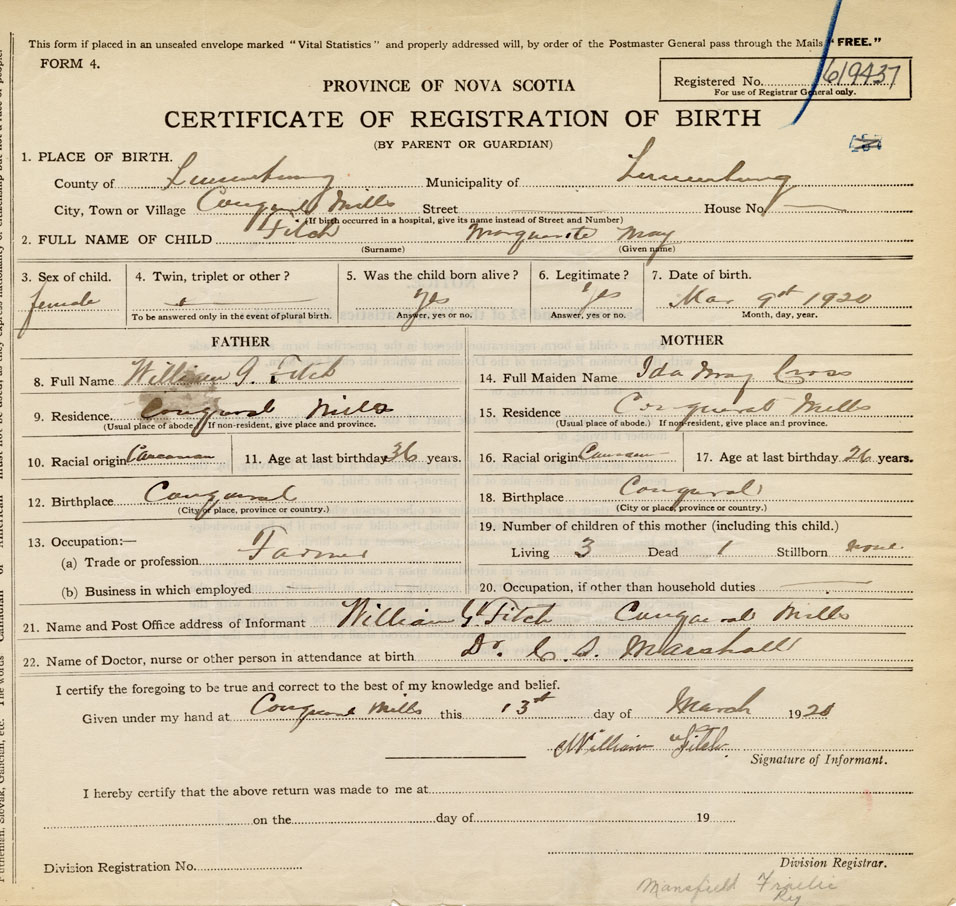 This form if placed in an unsealed envelope marked "Vital Statistics" and properly addressed will, by order of the Postmaster General pass through the Mails "FREE."
FORM 4.
Registered No. 619437
For use of Registrar General only.
PROVINCE OF NOVA SCOTIA
CERTIFICATE OF REGISTRATION OF BIRTH
(BY PARENT OR GUARDIAN)
1. PLACE OF BIRTH.
County of Lunenburg Municipality of Lunenburg
City, Town or Village Conquerall Mills Street House No.
(If birth occurred in a hospital, give its name instead of Street and Number)
2. FULL NAME OF CHILD Fitch Marguerite May
(Surname) (Given name)
3. Sex of child. 4. Twin, triplet or other? 5. Was the child born alive? 6. Legitimate? 7. Date of birth.
female Yes Yes Mar 9th 1920
To be answered only in the event of plural birth. Answer, yes or no. Answer, yes or no. Month, day, year.
FATHER MOTHER
8. Full Name William G. Fitch 14. Full Maiden Name Ida May Cross
9. Residence. Conquerall Mills 15. Residence Conquerall Mills
(Usual place of abode.) If non-resident, give place and province. (Usual place of abode.) If non-resident, give place and province.
10. Racial origin Caucasian 11. Age at last birthday 36 years. 16. Racial origin 17. Age at last birthday 26 years.
12. Birthplace Conquerall 18. Birthplace Conquerall
(City or place, province or country.) (City or place, province or country.)
13. Occupation:— 19. Number of children of this mother (including this child.)
(a) Trade or profession Farmer Living 3 Dead 1 Stillborn none
(b) Business in which employed 20. Occupation, if other than household duties
21. Name and Post Office address of Informant William G Fitch Conquerall Mills
22. Name of Doctor, nurse or other person in attendance at birth Dr. C. S. Marshall
I certify the foregoing to be true and correct to the best of my knowledge and belief.
Given under my hand at Conquerall Mills this 13th day of March 1920
William Fitch
Signature of Informant.
I hereby certify that the above return was made to me at
on the day of 19
Division Registration No.
Division Registrar.
Mansfield
Reg